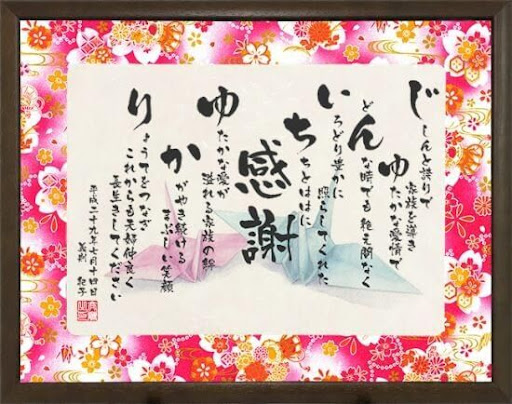 じしんと誇りで
家族を導き
ゆたかな愛情で
どんな時でも絶え間なく
いろどり豊かに
照らしてくれた
ちちとははに
感謝
ゆたかな愛が
溢れる家族の絆
かがやき続ける
まぶしい笑顔
りょうてをつなぎ
これからも夫婦仲良く
長生きしてください
平成二十九年七月十四日
紀子